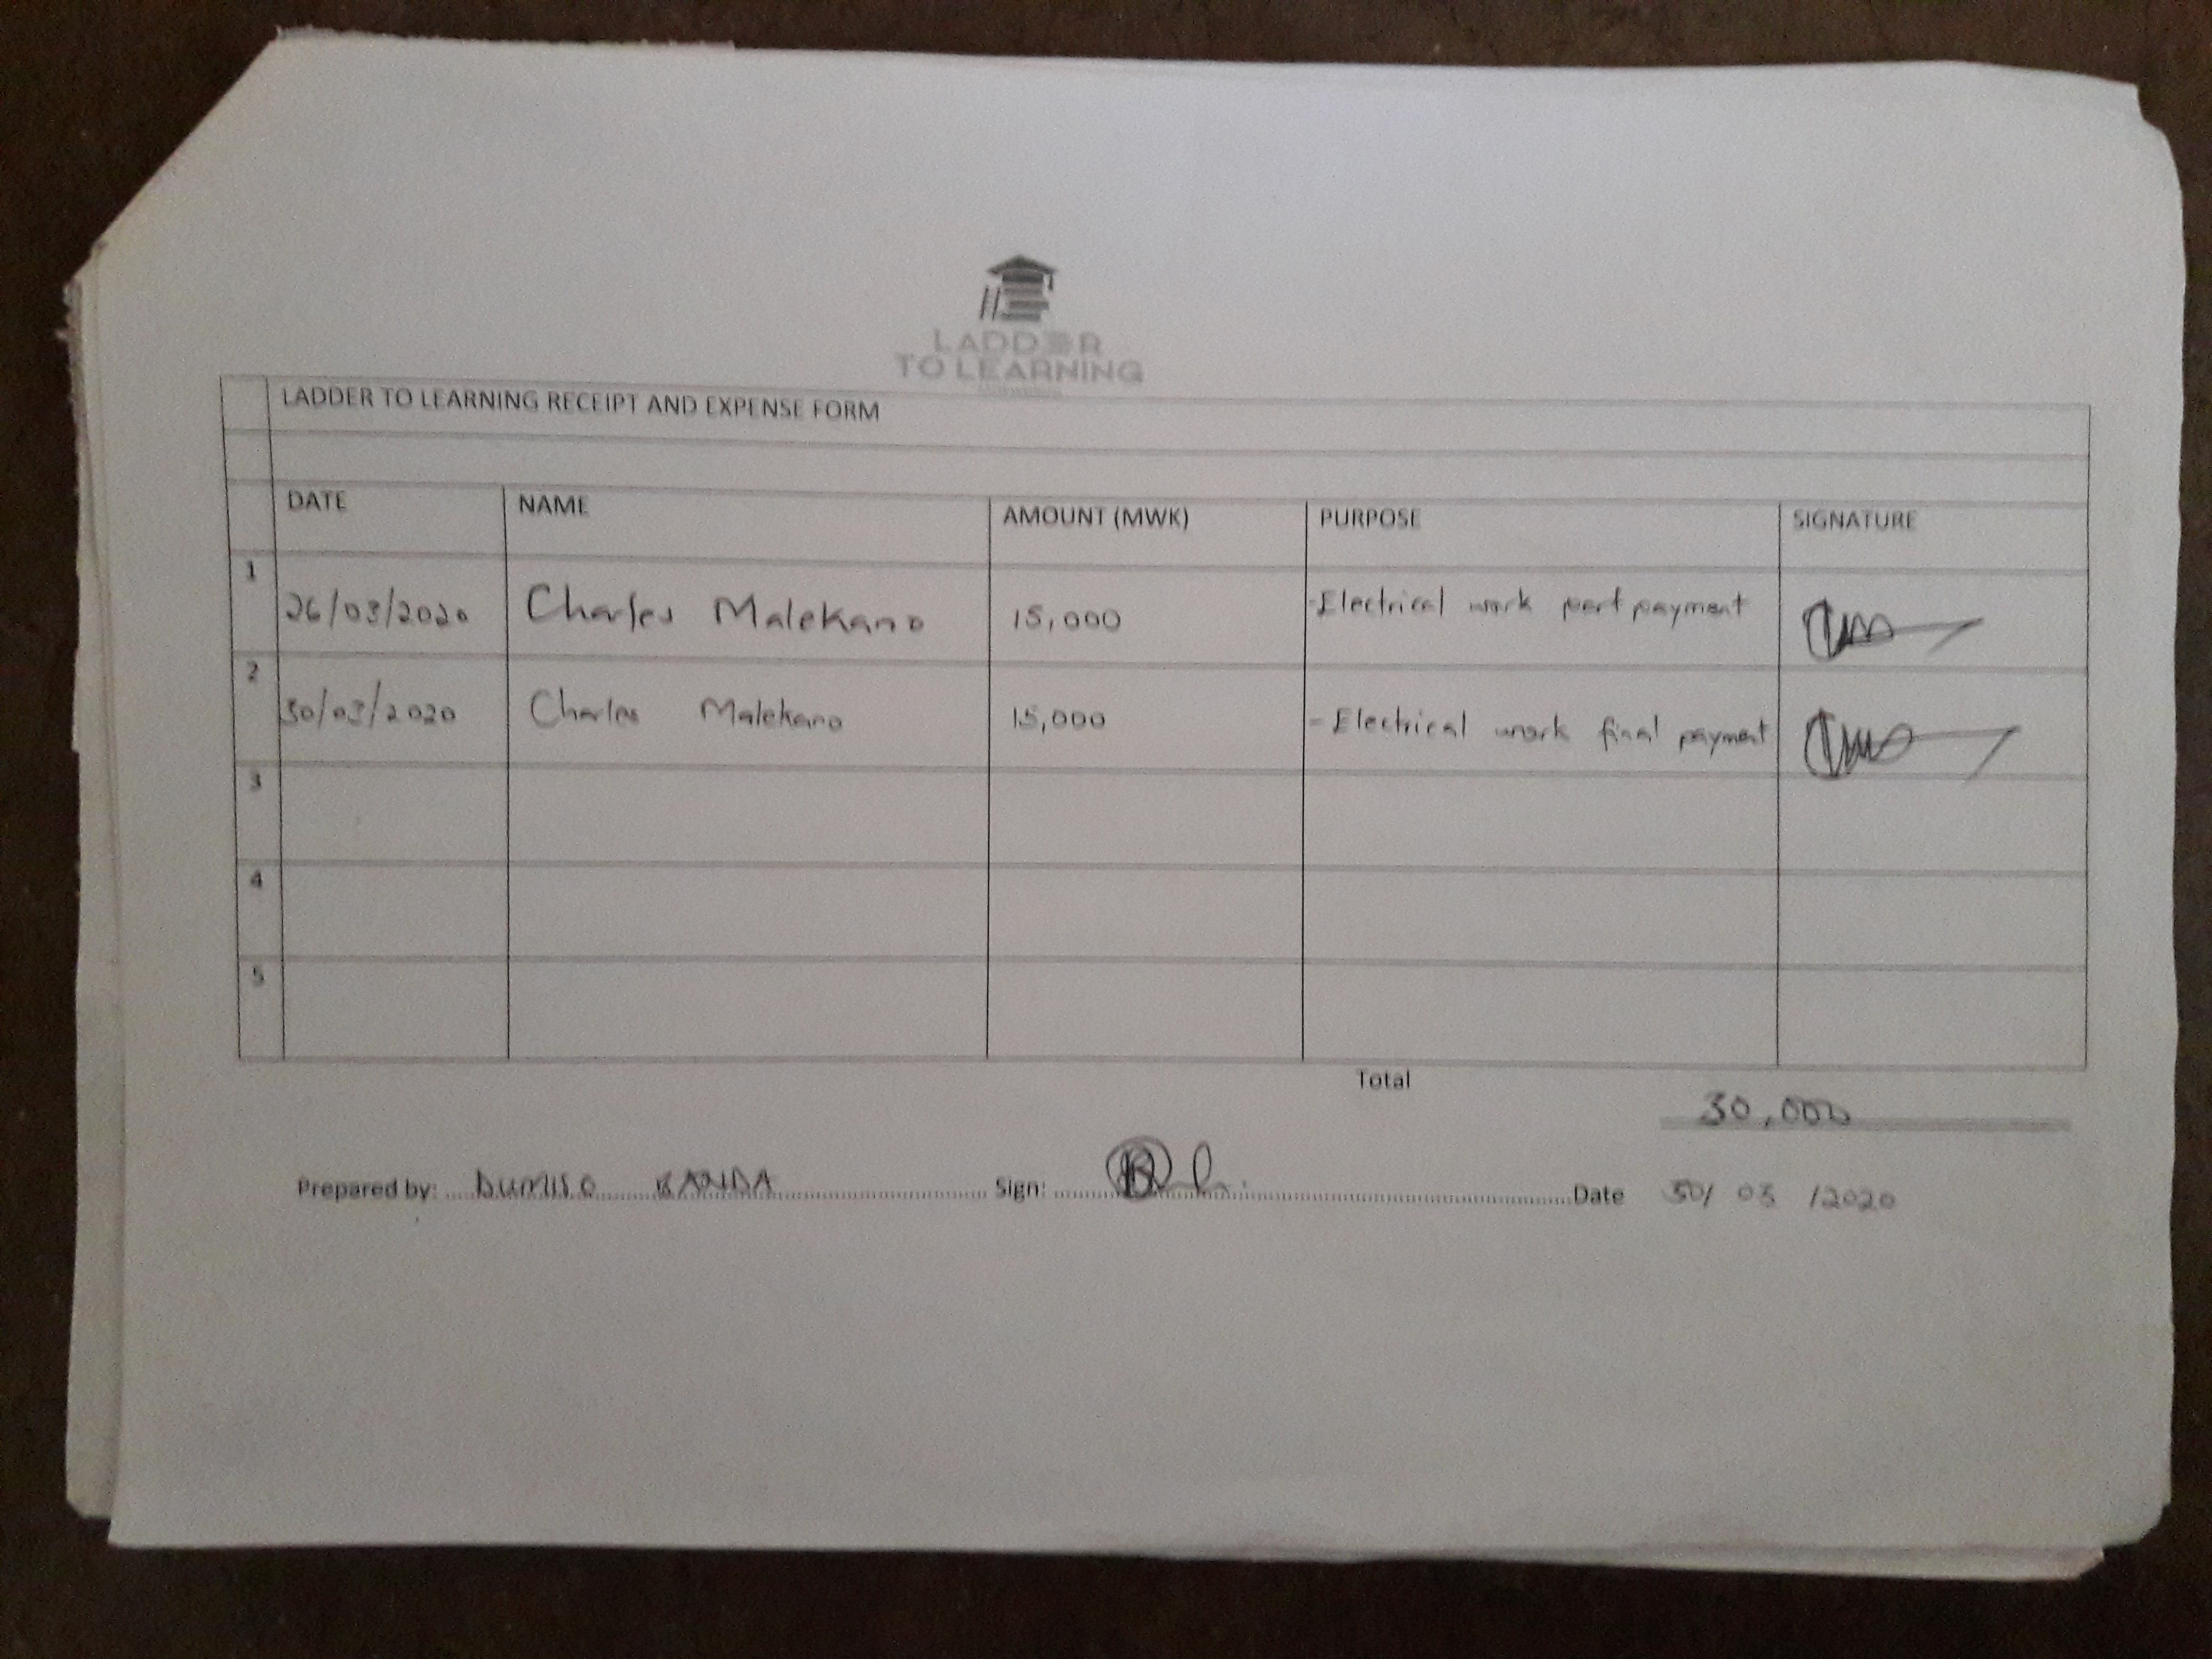 LADDER
TO LEARNING
LADDER TO LEARNING RECEIPT AND EXPENSE FORM
DATE NAME AMOUNT (MWK) PURPOSE SIGNATURE
1 26/03/2020 Charles Malekano 15,000 -Electrical work part payment
2 30/03/2020 Charles Malekano 15,000 - Electrical work final payment
3
4
5
Total 30,000
Prepared by: DUMISO BANDA Sign: Date 30/03/2020